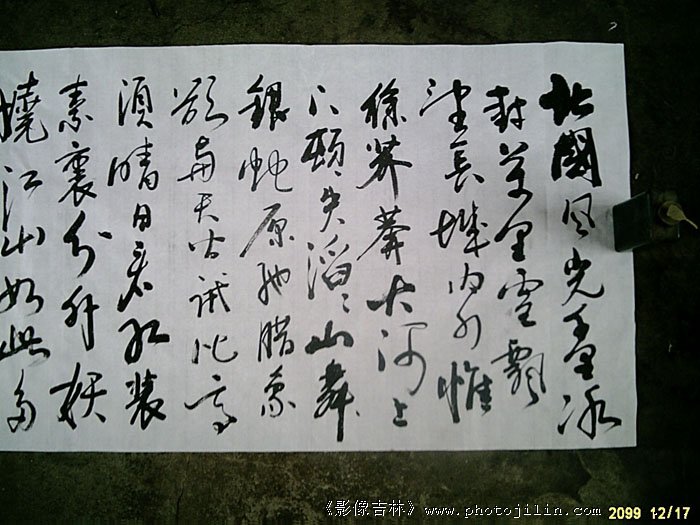 北國风光千里冰
封萬里雪飄
望長城内外惟
餘莽莽大河上
下頓失滔滔山舞
銀蛇原馳臘象
欲與天公试比高
須晴日看红裝
素裹分外妖
嬈江山如此多
《影像吉林》www.photojilin.com
2099 12/17